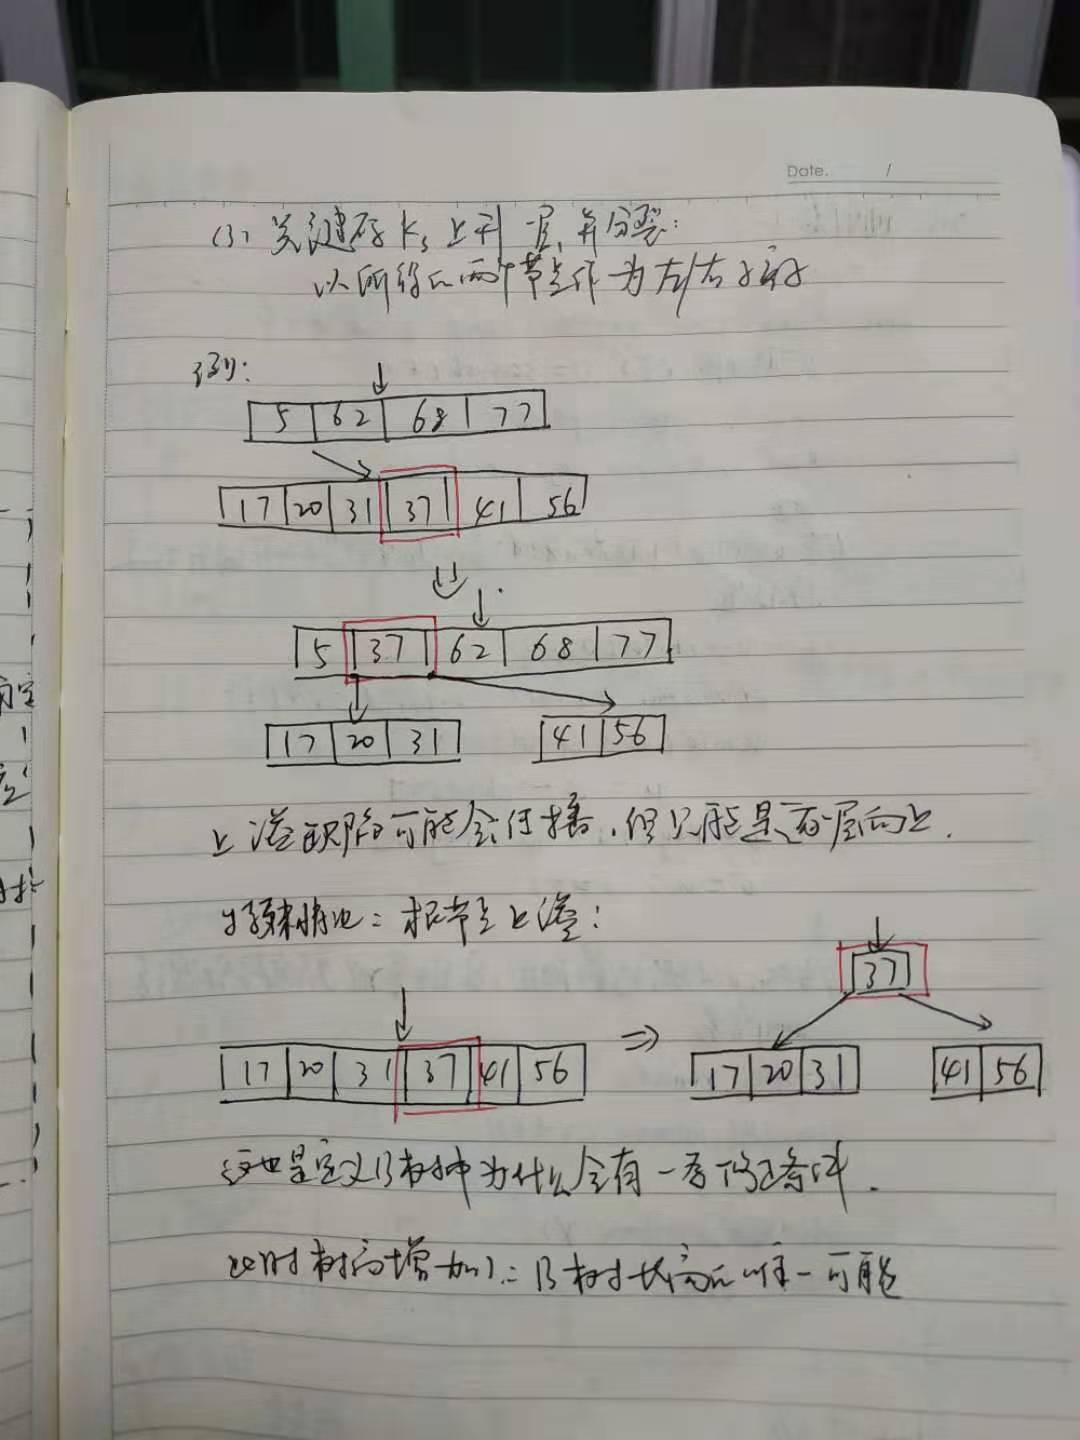 Date. /
(3) 关键码 Ks 上升一层，并分裂：
以所得的两个节点作为左/右子树
例：
5 62 68 77
17 20 31 37 41 56
5 37 62 68 77
17 20 31 41 56
上溢缺陷可能会传播，但只能是逐层向上.
特殊情况：根节点上溢：
37
17 20 31 37 41 56 ⇒ 17 20 31 41 56
这也是定义B树中为什么会有一者修正条件.
此时树高增加1：B树长高的唯一可能